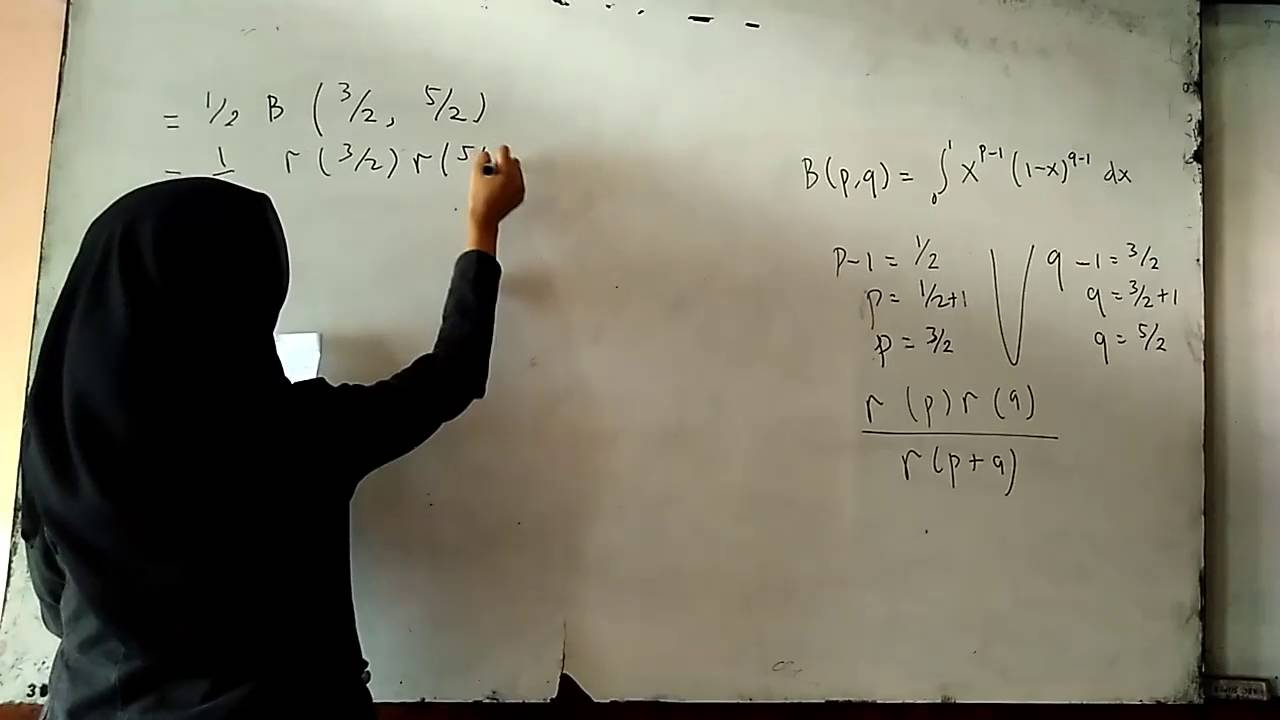 = 1/2 B (3/2, 5/2)
= 1 r (3/2) r (5
B(p,q) = ∫₀¹ x^{p-1} (1-x)^{q-1} dx
p-1 = 1/2
p = 1/2+1
p = 3/2
q -1 = 3/2
q = 3/2+1
q = 5/2
r (p) r (q)
r (p+q)